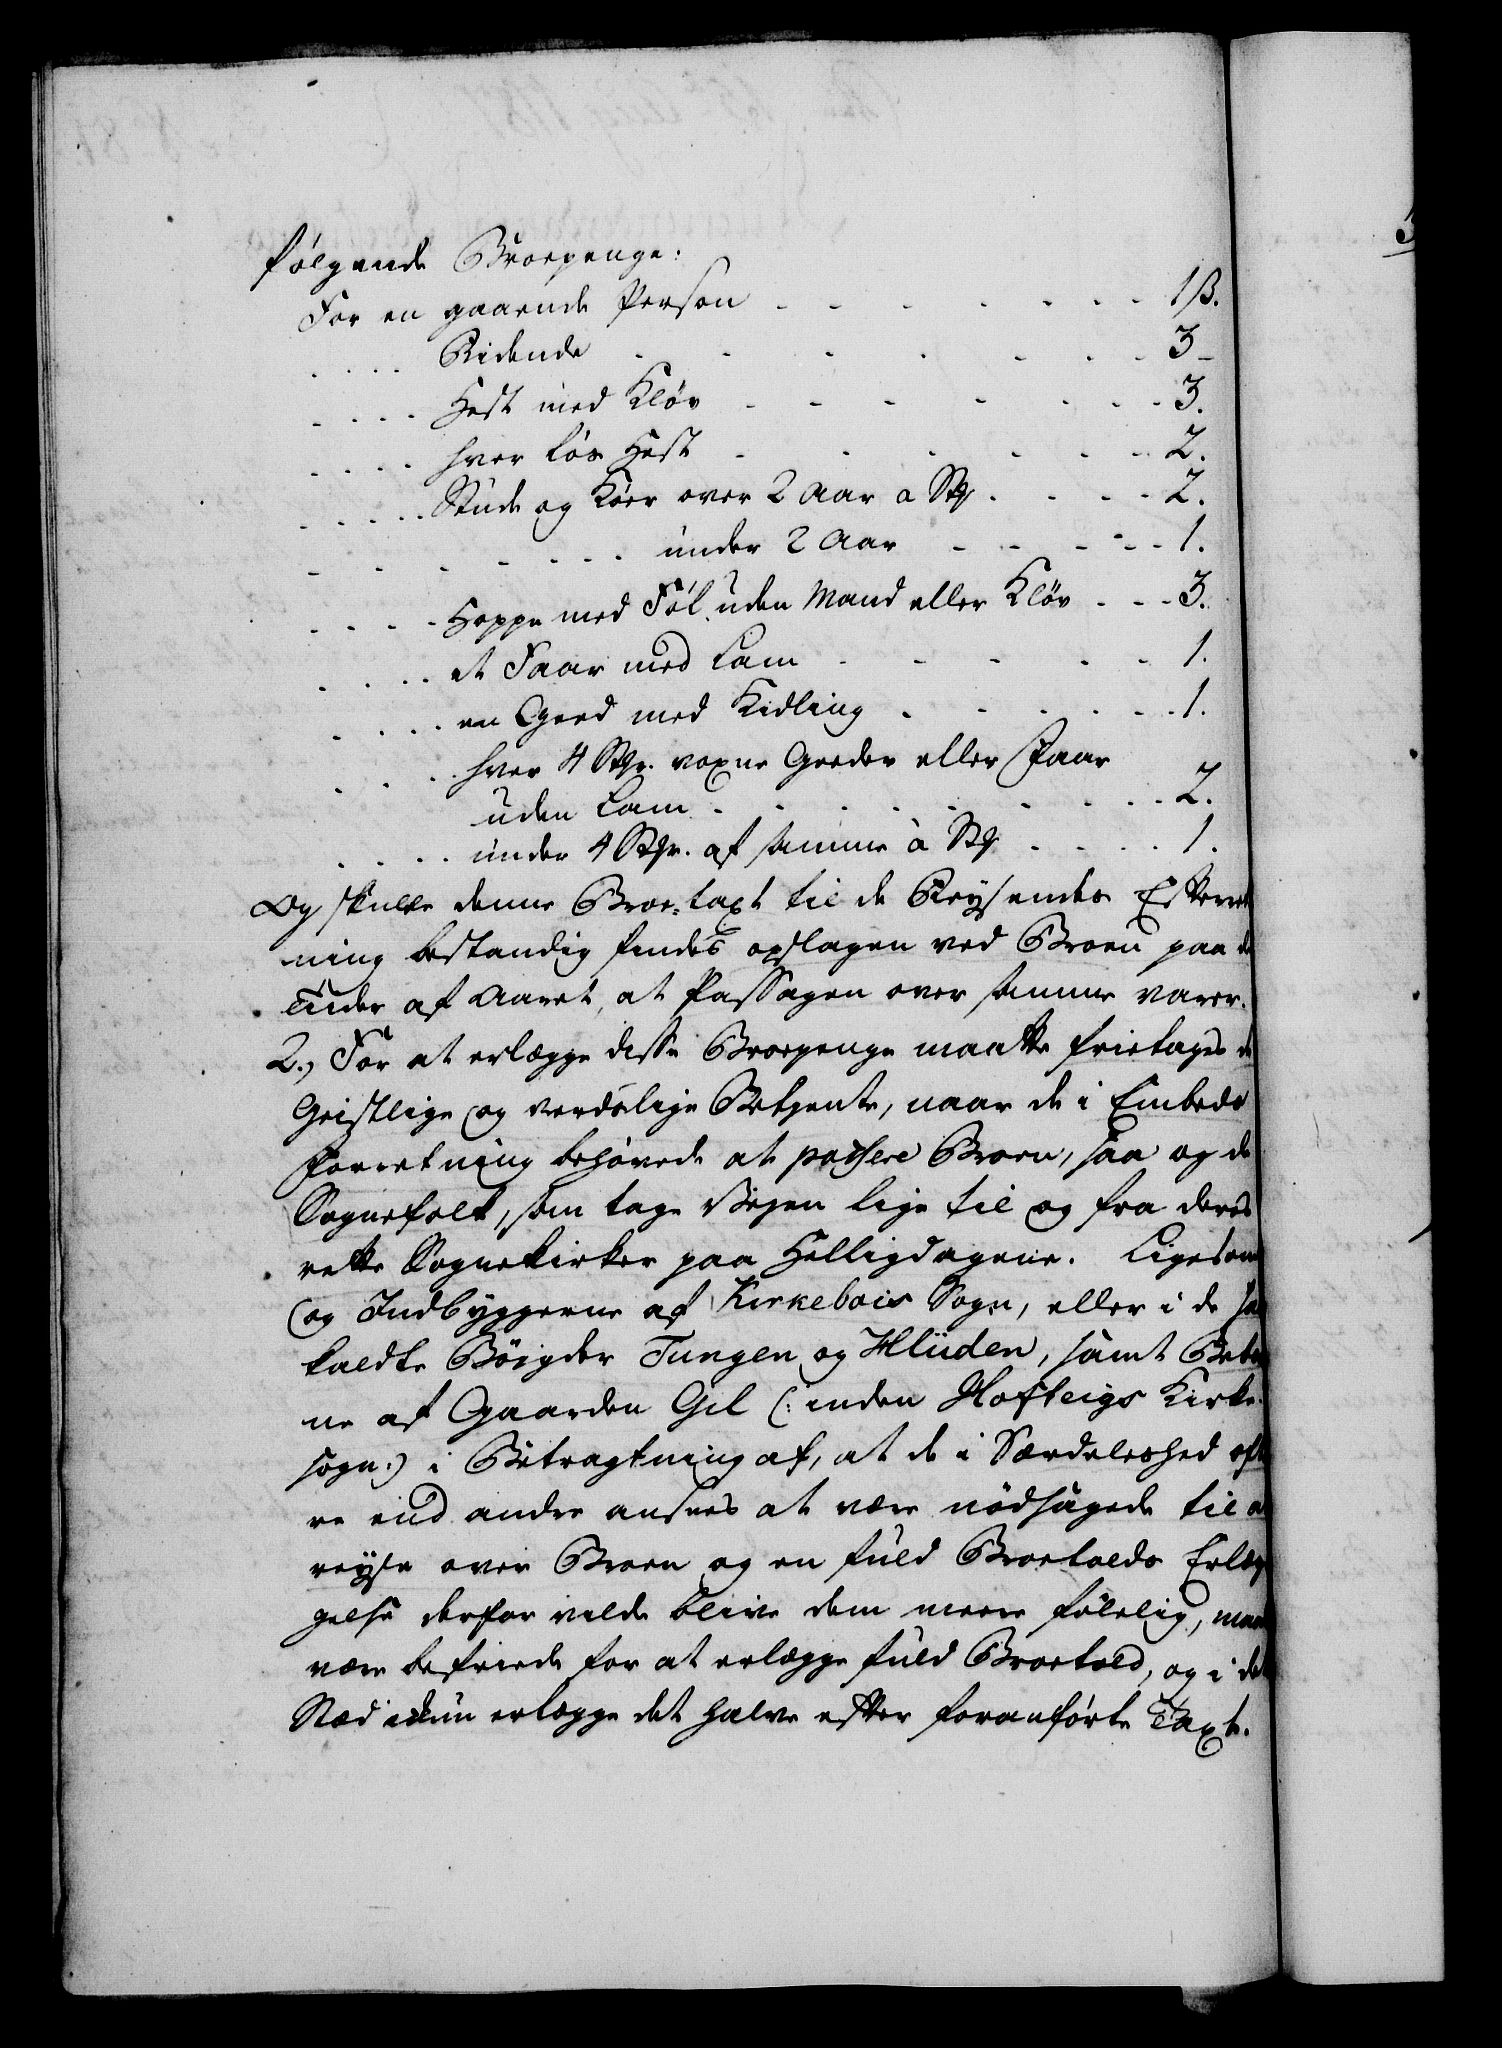 følgende Broepenge:
For en gaaende Person - - - - - - - - 1 ß.
. . . . Ridende - - - - - - - - 3 -
. . . . Hest med Kløv - - - - - - - - 3.
. . . . hver løs Hest - - - - - - - 2.
. . . . . Stude og Køer over 2 Aar a Stk - - - - 2.
- - - - - - - under 2 Aar - - - - - 1.
. . . . Hoppe med Føl uden Mand eller Kløv - - - 3.
. . . . et Faar med Lam - - - - - 1.
. . . . en Geed med Kidling - - - - - - 1.
. . . . hver 4 Stkr. voxne Geeder eller Faar
uden Lam - - - - - - - - 2.
. . . . under 4 Stkr. af samme à Stk - - - - 1.
Og skulle denne Broe-taxt til de Reysendes Efterret
ning bestandig findes opslagen ved Broen paa de
Tider af Aaret, at Passagen over samme varer.
2.) For at erlægge disse Broepenge maatte frietages de
Geistlige og verdslige Betjente, naar de i Embeds
Forretning behøvede at passere Broen, saa og de
Sognefolk, som tage Vejen lige til og fra deres
rette Sognekirker paa Helligdagene. Ligesom
og Indbyggerne af Kirkebois Sogn, eller i de saa
kaldte Bøigder Tungen og Hliiden, samt Beboer
ne af Gaarden Gil (: inden Hofteigs Kirke-
sogn:) i Betragtning af, at de i Særdeleshed ofte
re end andre ansees at være nødsagede til at
reyse over Broen og en fuld Broetolds Erlæg
gelse derfor vilde blive dem meere følelig, maatte
være befriede for at erlægge fuld Broetold, og i det
Sted ikkun erlægge det halve efter foranførte Taxt.